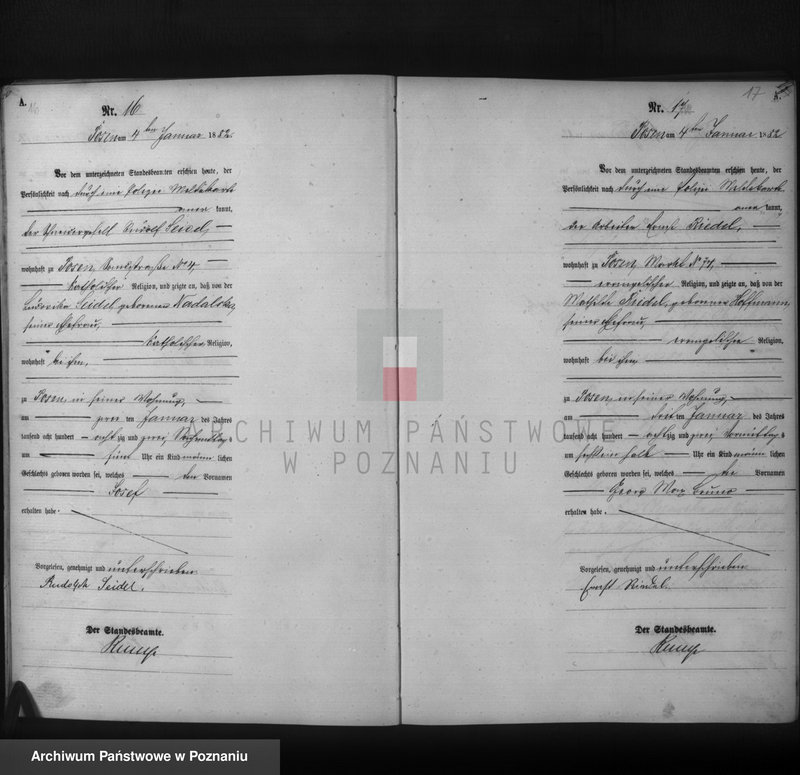 A.
Nr. 16
Posen am 4ten Januar 1882
Vor dem unterzeichneten Standesbeamten erschien heute, der
Persönlichkeit nach durch eine Polizei Meldekarte
aner kannt,
der Rudolf Seidel
wohnhaft zu Posen, No 4,
katholischer Religion, und zeigte an, daß von der
Seidel, geborenen Nadolska,
seiner Ehefrau,
katholischer Religion,
wohnhaft bei ihm,
zu Posen, in seiner Wohnung,
am zwei ten Januar des Jahres
tausend acht hundert achtzig und zwei, Nachmittags
um fünf Uhr ein Kind männlichen
Geschlechts geboren worden sei, welches den Vornamen
Josef
erhalten habe.
Vorgelesen, genehmigt und unterschrieben
Rudolph Seidel.
Der Standesbeamte.
17
A.
Nr. 17
Posen am 4ten Januar 1882
Vor dem unterzeichneten Standesbeamten erschien heute, der
Persönlichkeit nach durch eine Polizei Meldekarte
aner kannt,
der Arbeiter Ernst Riedel,
wohnhaft zu Posen, Markt No 71,
evangelischer Religion, und zeigte an, daß von der
Mathilde Riedel, geborenen Hoffmann,
seiner Ehefrau,
evangelischer Religion,
wohnhaft bei ihm
zu Posen, in seiner Wohnung,
am dritten Januar des Jahres
tausend acht hundert achtzig und zwei Vormittags
um halb Uhr ein Kind männlichen
Geschlechts geboren worden sei, welches die Vornamen
Georg Max Bruno
erhalten habe.
Vorgelesen, genehmigt und unterschrieben
Ernst Riedel.
Der Standesbeamte.
ARCHIWUM PAŃSTWOWE
W POZNANIU
Archiwum Państwowe w Poznaniu